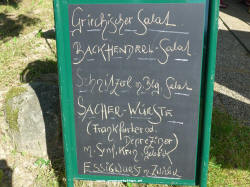 Griechischer Salat
BACKHENDERL-Salat
Schnitzerl m. Blg. Salat
SACHER-WÜRSTL
(Frankfurter od.
Debreziner)
m. Senf, Kren, Gebäck
ESSIGWURST m. Zwiebel